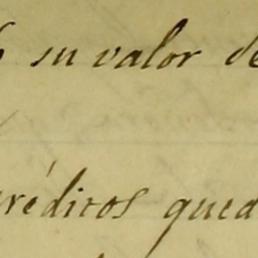 su valor de
créditos qued